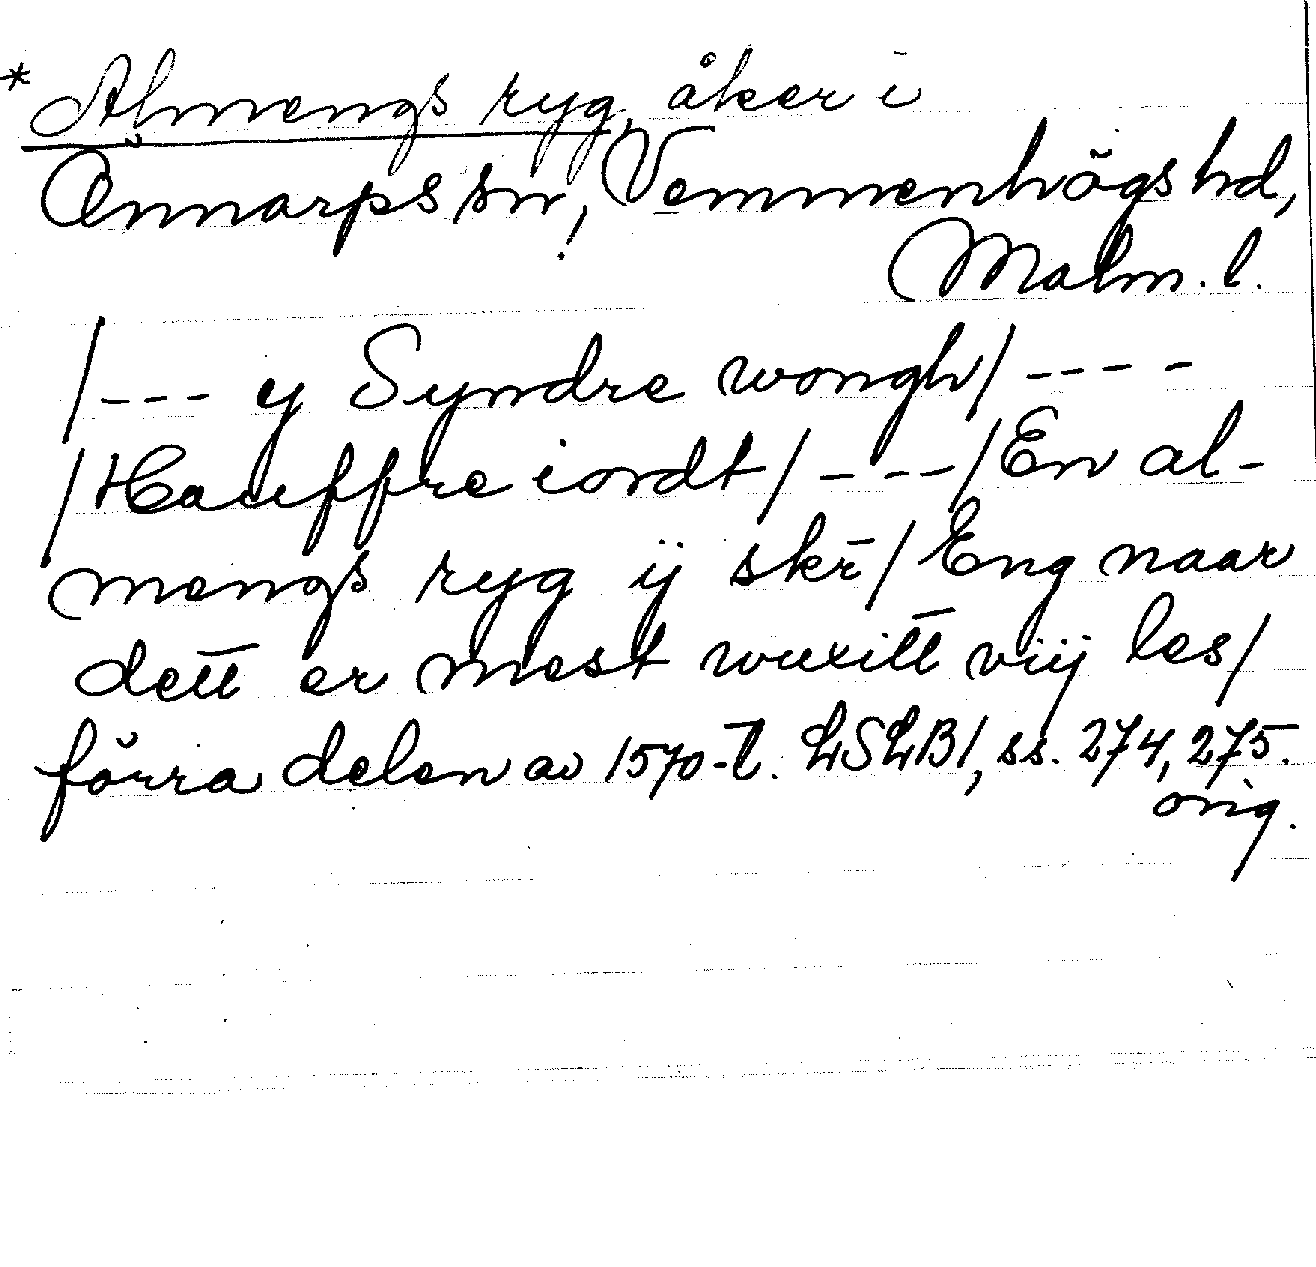 *Almengs ryg, åker i
Önnarps sn, Vemmenhögs hd,
Malm. l.
/--- y Syndre wongh/----
/Hauffre iordt/---/En al-
mengs ryg ij skr̄/Eng naar
det̄t er mest wuxit̄t viij les/
förra delen av 1570-t. LSLB1, ss. 274, 275.
orig.